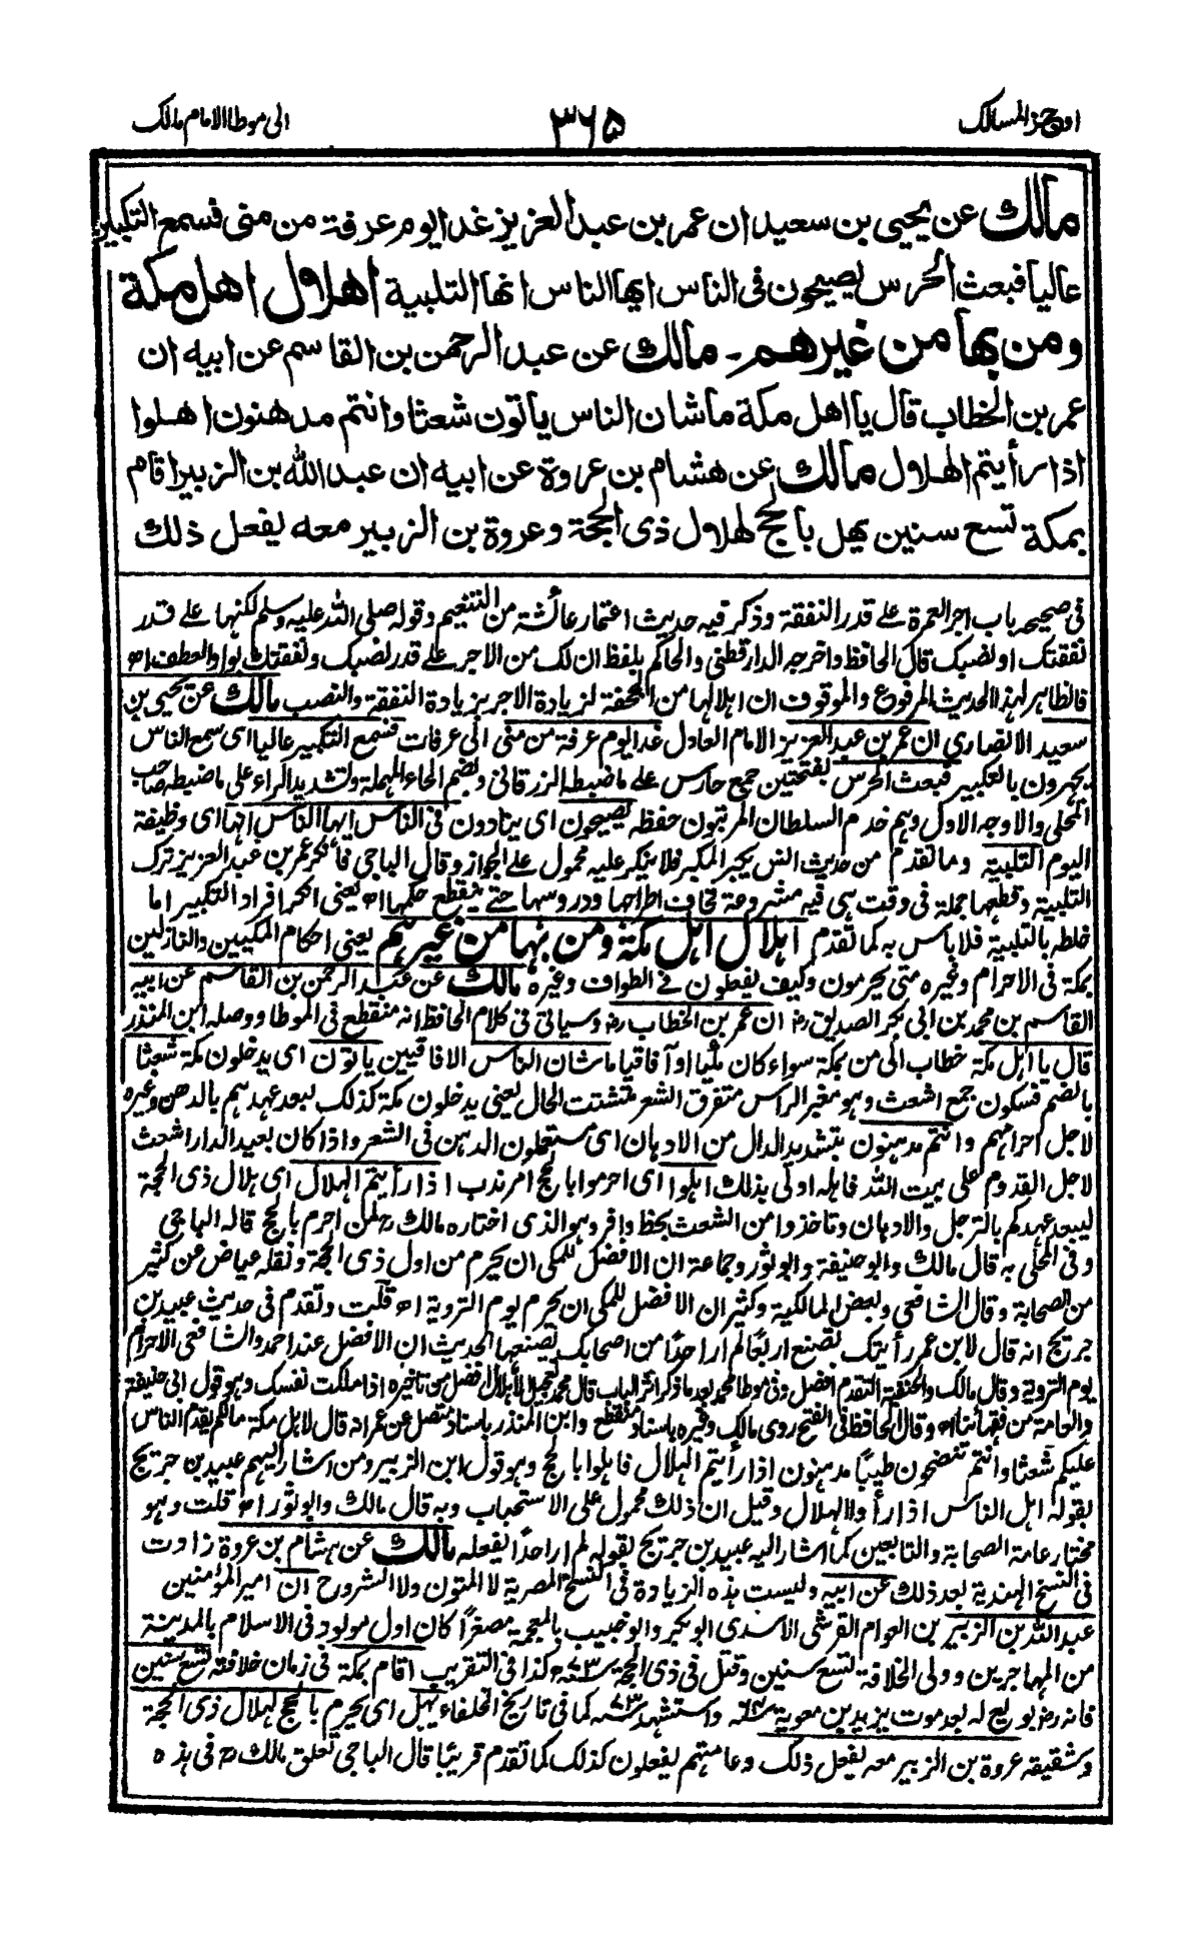 اوجز المسالك ٣٦٥ الى موطا الامام مالك
مالك عن يحيى بن سعيد ان عمر بن عبد العزيز غدا يوم عرفة من منى فسمع التكبير
عاليا فبعث الحرس يصيحون فى الناس ايها الناس انها التلبية اهلال اهل مكة
ومن بها من غيرهم ۔ مالك عن عبد الرحمن بن القاسم عن ابيه ان
عمر بن الخطاب قال يا اهل مكة ما شان الناس ياتون شعثا وانتم مدهنون اهلوا
اذا رأيتم الهلال مالك عن هشام بن عروة عن ابيه ان عبد الله بن الزبير اقام
بمكة تسع سنين يهل بالحج لهلال ذى الحجة وعروة بن الزبير معه يفعل ذلك
فى صحيحه باب اجر العمرة على قدر النفقة وذكر فيه حديث اعتمار عائشة من التنعيم وقوله صلى الله عليه وسلم لكنها على قدر
نفقتك او نصبك قال الحافظ واخرجه الدارقطنى والحاكم بلفظ ان لك من الاجر على قدر نصبك ونفقتك بواو العطف اه
فالظاهر لهذا الحديث المرفوع والموقوف ان اهلالها من الجحفة لزيادة الاجر بزيادة النفقة والنصب مالك عن يحيى بن
سعيد الانصاري ان عمر بن عبد العزيز الامام العادل غدا يوم عرفة من منى الى عرفات فسمع التكبير عاليا اى سمع الناس
يجهرون بالتكبير فبعث الحرس بفتحتين جمع حارس على ما ضبطه الزرقانى وبضم الحاء المهملة وتشديد الراء على ما ضبطه صاحب
المحلى والاوجه الاول وهم خدم السلطان المرتبون حفظه يصيحون اى ينادون فى الناس ايها الناس انها اى وظيفة
اليوم التلبية وما تقدم من حديث انس يكبر المكبر فلا ينكر عليه محمول على الجواز وقال الباجى فانكر عمر بن عبد العزيز ترك
التلبية وقطعها جملة فى وقت هى فيه مشروعة فخاف اطراحها ودروسها حتى ينقطع حكمها اه يعنى انكر افراد التكبير اما
خلطه بالتلبية فلا باس به كما تقدم اهلال اهل مكة ومن بها من غيرهم يعنى احكام المكيين والنازلين
بمكة فى الاحرام وغيره متى يحرمون وكيف يفعلون فى الطواف وغيره مالك عن عبد الرحمن بن القاسم عن ابيه
القاسم بن محمد بن ابى بكر الصديق رض ان عمر بن الخطاب رض وسياتى فى كلام الحافظ انه منقطع فى الموطا ووصله ابن المنذر
قال يا اهل مكة خطاب الى من بمكة سواء كان مكيا او آفاقيا ما شان الناس الافاقيين ياتون اى يدخلون مكة شعثا
بالضم فسكون جمع اشعث وهو مغبر الراس متفرق الشعر متشتت الحال يعنى يدخلون مكة كذلك لبعد عهدهم بالدهن وغيره
لاجل احرامهم وانتم مدهنون بتشديد الدال من الادهان اى مستعملون الدهن فى الشعر واذا كان بعيد الدار اشعث
لاجل القدوم على بيت الله فاهله اولى بذلك اهلوا اى احرموا بالحج امر ندب اذا رأيتم الهلال اى هلال ذى الحجة
ليبعد عهدكم بالترجل والادهان وتاخذوا من الشعث بحظ وافر وهو الذى اختاره مالك رح لمن احرم بالحج قاله الباجى
وفى المحلى به قال مالك وابو حنيفة وابو ثور وجماعة ان الافضل للمكى ان يحرم من اول ذى الحجة ونقله عياض عن كثير
من الصحابة وقال الشافعى وبعض المالكية وكثير ان الافضل للمكى ان يحرم يوم التروية اه قلت وتقدم فى حديث عبيد بن
جريج انه قال لابن عمر رأيتك تصنع اربعا لم ار احدا من اصحابك يصنعها الحديث ان الافضل عند احمد والشافعى الاحرام
يوم التروية وقال مالك والحنفية التقدم افضل وفى موطا محمد بعد ما ذكر اثر الباب قال محمد تعجيل الاهلال افضل من تاخيره اذا ملكت نفسك وهو قول ابى حنيفة
والعامة من فقهائنا اه وقال الحافظ فى الفتح روى مالك وغيره باسناد منقطع وابن المنذر باسناد متصل عن عمر انه قال لاهل مكة مالكم يقدم الناس
عليكم شعثا وانتم تنضحون طيبا مدهنون اذا رأيتم الهلال فاهلوا بالحج وهو قول ابن الزبير ومن اشار اليهم عبيد بن جريج
بقوله اهل الناس اذا رأوا الهلال وقيل ان ذلك محمول على الاستحباب وبه قال مالك وابو ثور اه قلت وهو
مختار عامة الصحابة والتابعين كما اشار اليه عبيد بن جريج بقوله لم ار احدا يفعله مالك عن هشام بن عروة زادت
فى النسخ الهندية بعد ذلك عن ابيه وليست هذه الزيادة فى النسخ المصرية لا المتون ولا الشروح ان امير المؤمنين
عبد الله بن الزبير بن العوام القرشى الاسدى ابو بكر وابو خبيب بالمعجمة مصغرا كان اول مولود فى الاسلام بالمدينة
من المهاجرين وولى الخلافة تسع سنين وقتل فى ذى الحجة سنة ٧٣ه كذا فى التقريب اقام بمكة فى زمان خلافته تسع سنين
فانه رض بويع له بعد موت يزيد بن معوية سنة ٦٤ه واستشهد سنة ٧٣ه كما فى تاريخ الخلفاء يهل اى يحرم بالحج لهلال ذى الحجة
وشقيقه عروة بن الزبير معه يفعل ذلك وعامتهم يفعلون كذلك كما تقدم قريبا قال الباجى تعلق مالك رح فى هذه